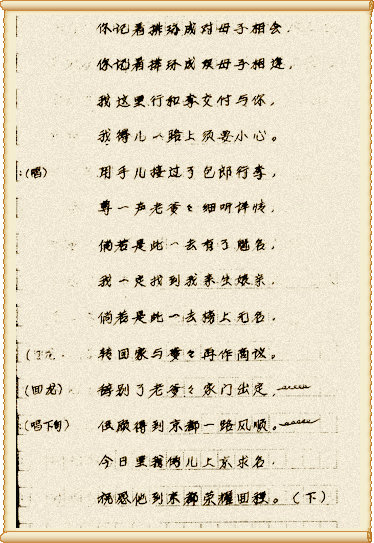 你记着排环成对母子相会,
你记着排环成双母子相逢,
我这里行和李交付与你,
我得儿一路上须要小心。
(唱) 用手儿接过了包郎行李,
尊一声老爹々细听详情,
倘若是此一去有了名,
我一定找到我亲生娘亲,
倘若是此一去榜上无名,
转回家与爹々再作商议。
(回龙) 辞别了老爹々家门出定,
(唱下句) 但愿得到京都一路风顺。
今日里我儿上京求名,
祝愿他到京都荣耀回程。(下)